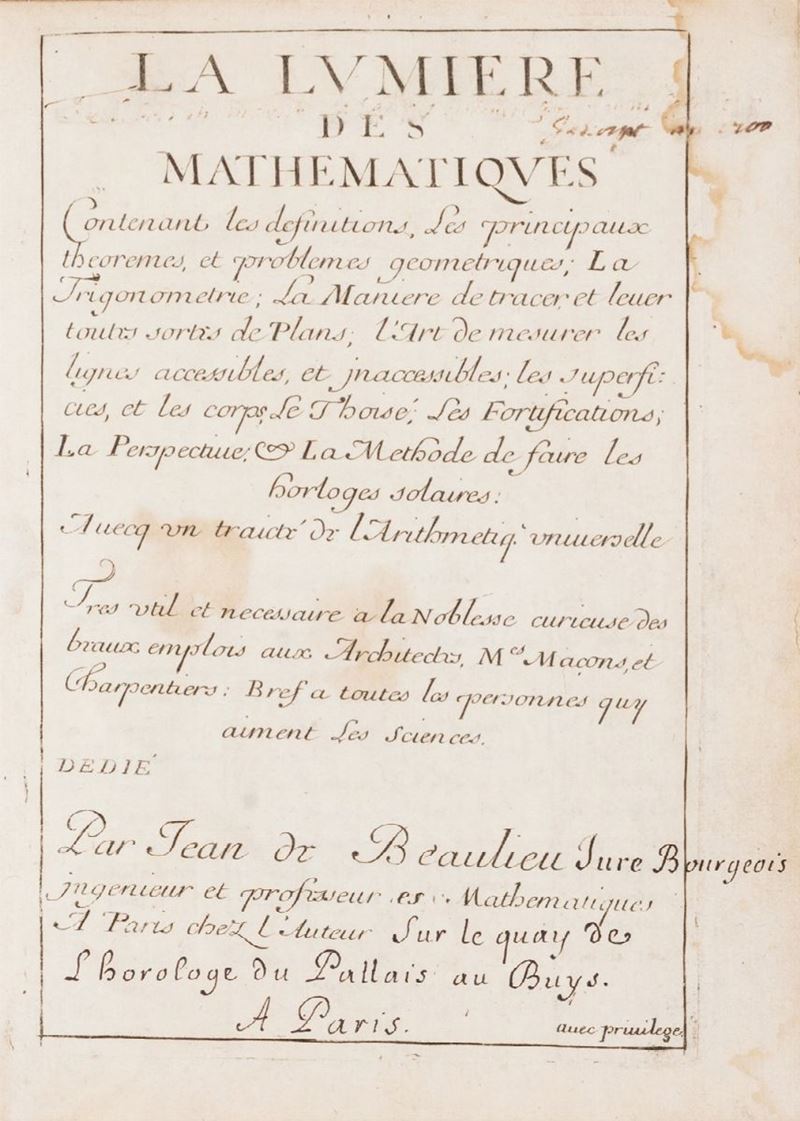 LA LVMIERE
DES
MATHEMATIQVES
Contenant les definitions, Les principaux
theoremes, et problemes geometriques; La
Trigonometrie; La Maniere de tracer et leuer
toutes sortes de Plans; l'Art de mesurer les
lignes accessibles, et jnaccessibles; les superfi:
cies, et les corps, Le Thoisé; Les Fortifications;
La Perspectiue; & La Methode de faire les
horloges solaires:
Auecq vn traicté de l'Arithmetiq. vniuerselle
Tres vtil et necessaire a la Noblesse curieuse des
beaux emplois aux Architectes, M.es Maçons, et
Charpentiers: Bref a toutes les personnes quy
aiment Les Sciences.
DEDIÉ
Par Jean de Beaulieu Jure Bourgeois
jngenieur et professeur es Mathematiques
A Paris chez L'Auteur Sur le quay de
L horologe du Pallais au Buys.
A Paris.
auec priuilege.